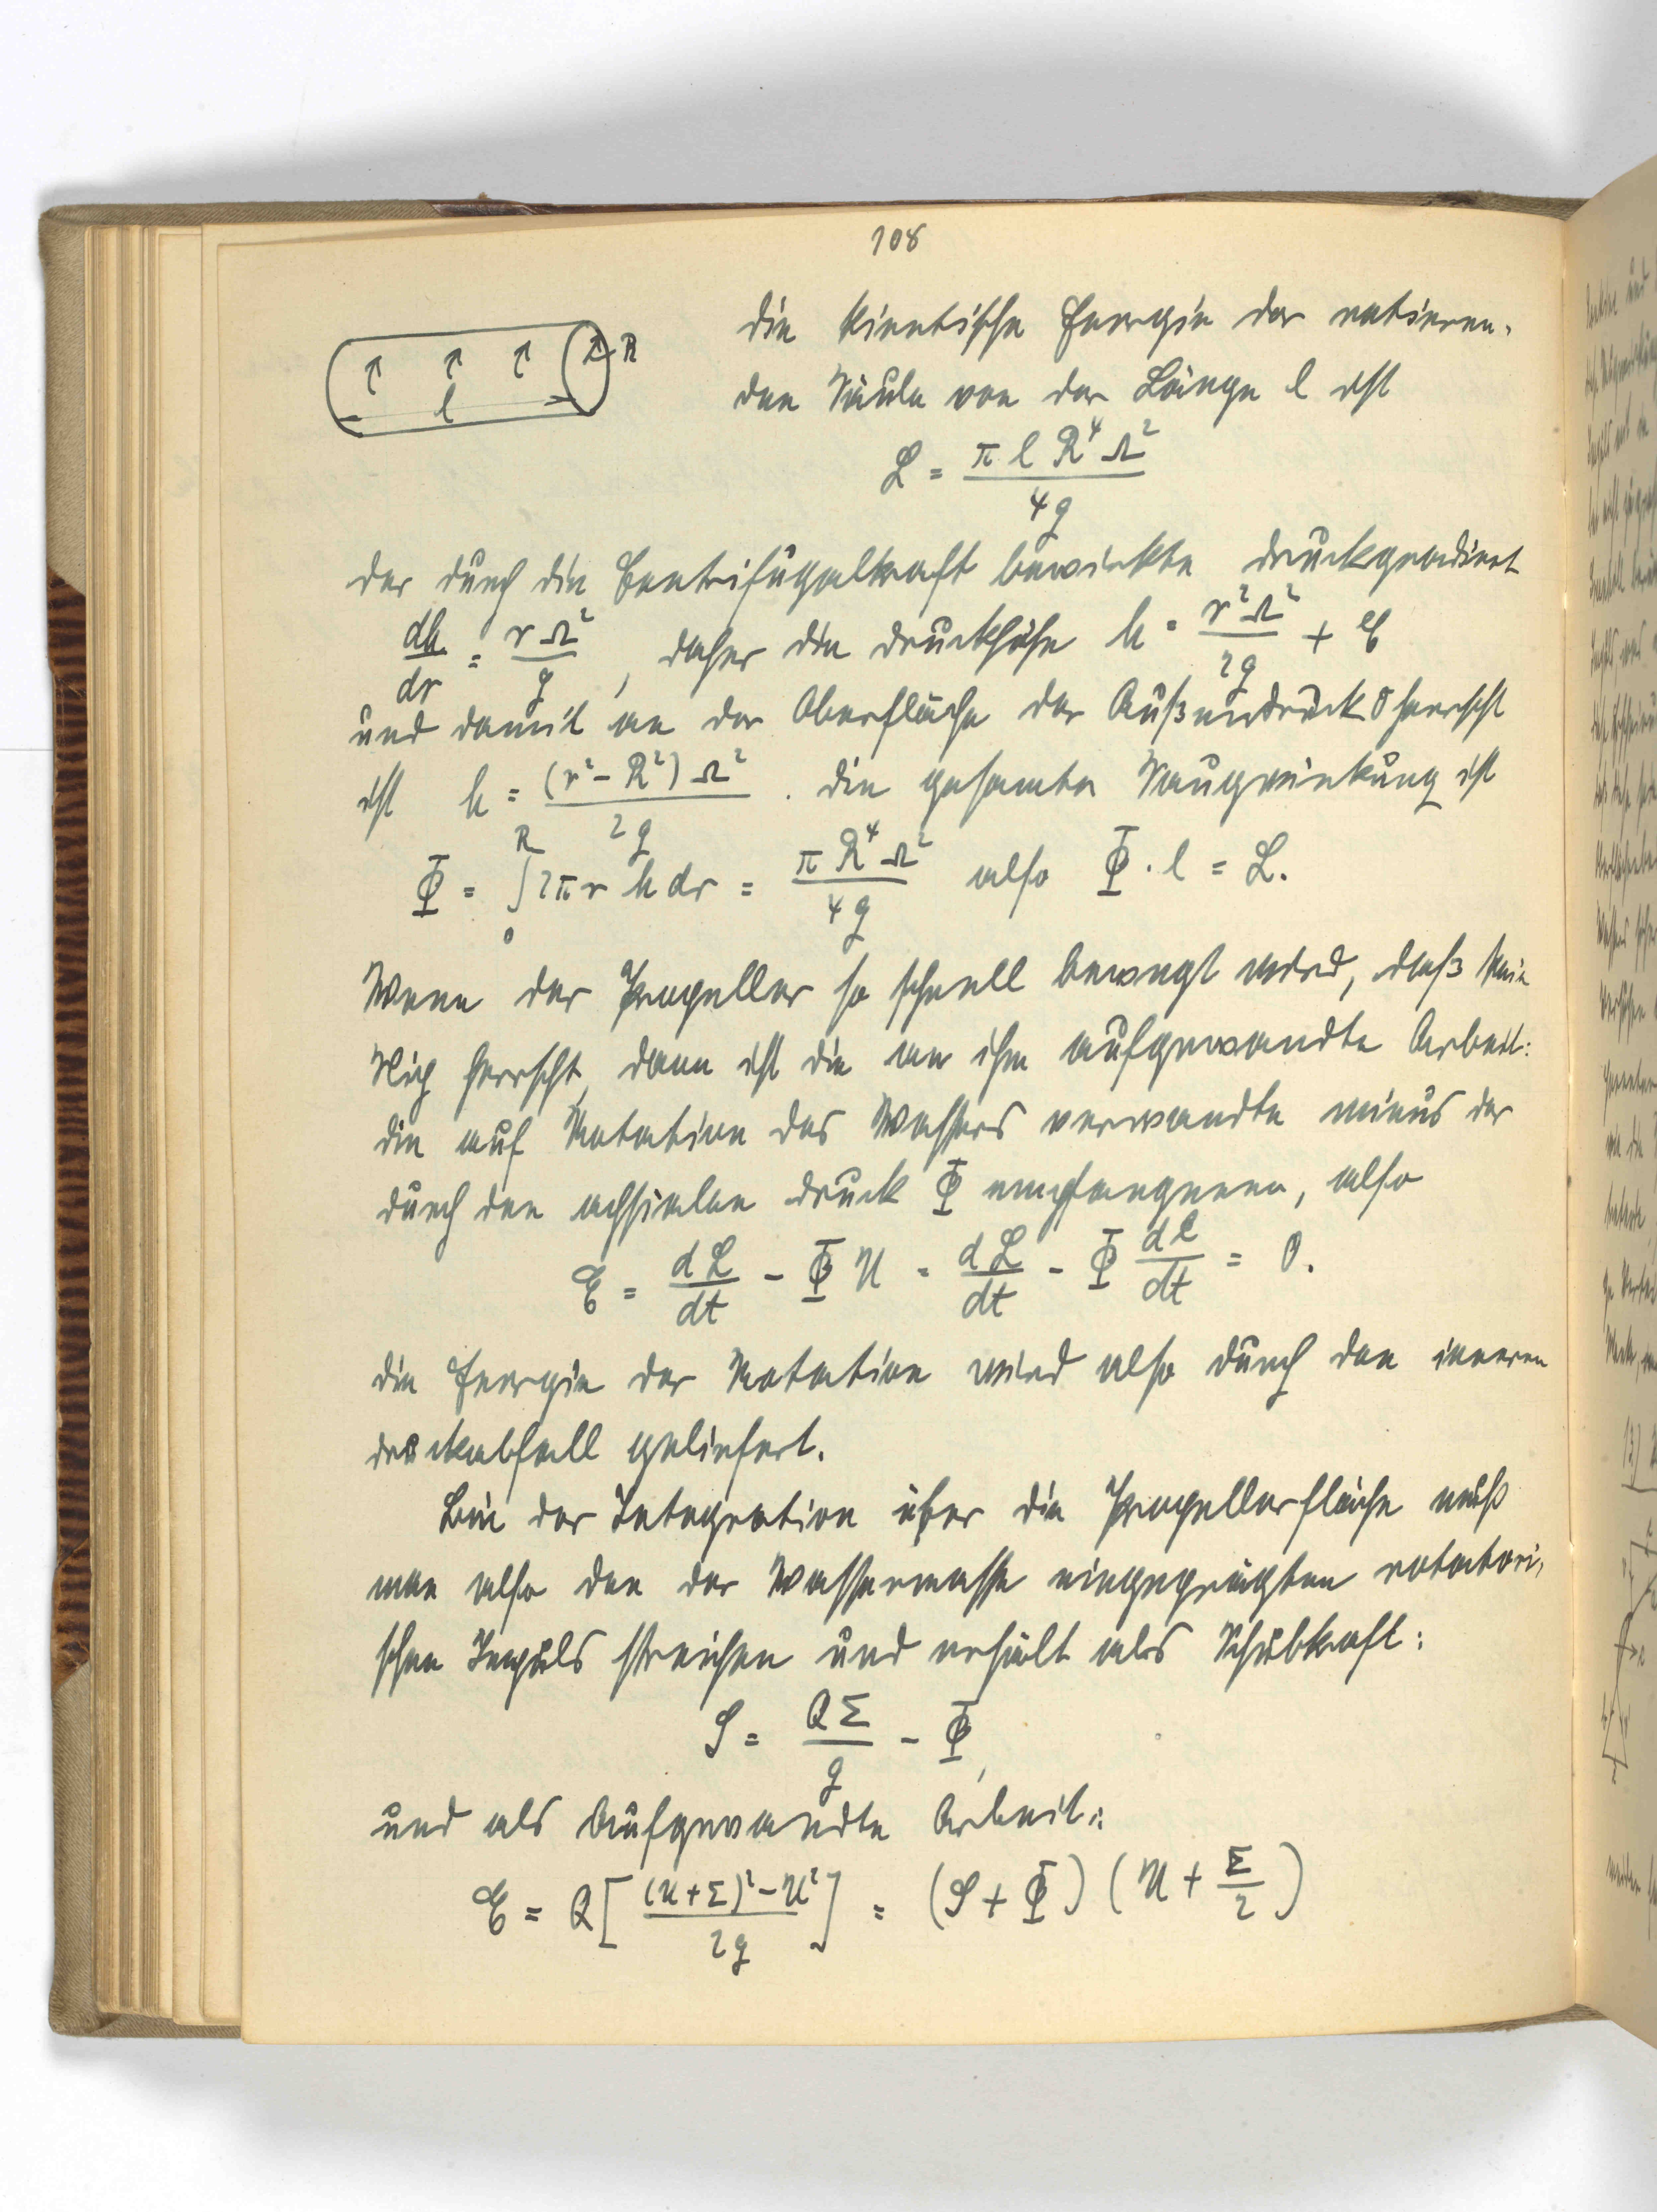 108
die kinetische Energie der rotieren-
den Säule von der Länge l ist
L = π l R⁴ Ω² / 4g
R
l
der durch die Centrifugalkraft bewirkte Druckgradient
dh/dr = rΩ²/g , daher die Druckhöhe h = r²Ω²/2g + C
und damit an der Oberfläche der Außendruck 0 herrscht
ist h = (r² - R²) Ω² / 2g . die gesamte Saugwirkung ist
Φ = ∫₀ᴿ 2π r h dr = π R⁴ Ω² / 4g also Φ · l = L.
Wenn der Propeller so schnell bewegt wird, daß kein
Slip herrscht, dann ist die an ihm aufgewandte Arbeit:
die auf Rotation des Wassers verwandte minus der
durch den achsialen Druck Φ empfangenen, also
E = dL/dt - Φ U = dL/dt - Φ dl/dt = 0.
die Energie der Rotation wird also durch den inneren
Druckabfall geliefert.
Bei der Integration über die Propellerfläche muß
man also den der Wassermasse eingeprägten rotatori-
schen Impuls streichen und erhält als Schubkraft:
S = QΣ/g - Φ,
und als aufgewandte Arbeit:
E = Q [ ((U+Σ)² - U²) / 2g ] = (S + Φ) (U + Σ/2)